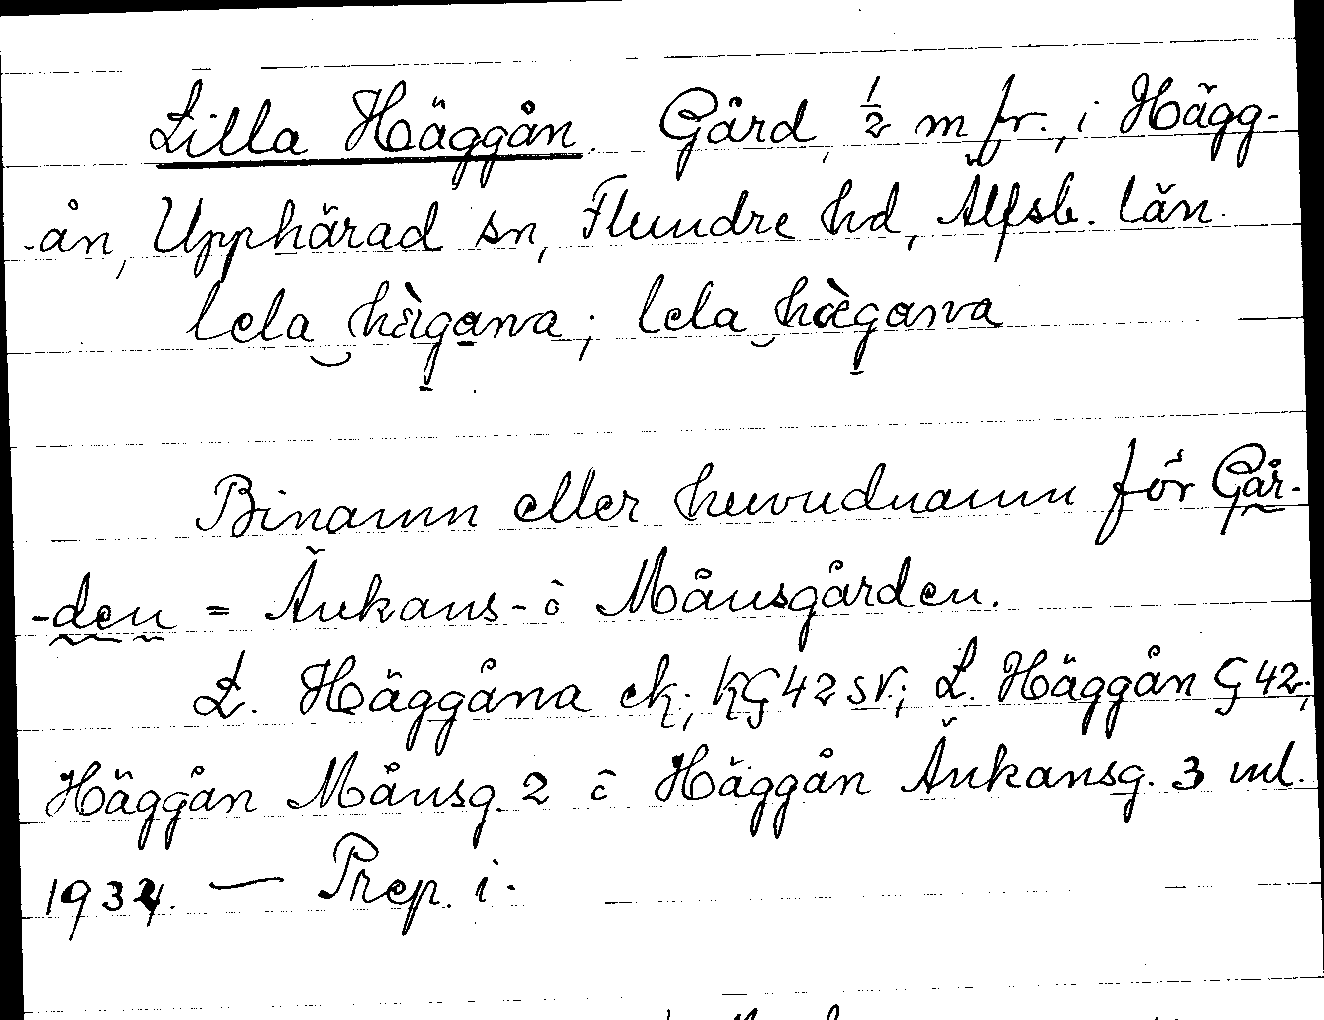 Lilla Häggån. Gård, 1/2 m fr., i Hägg-
-ån, Upphärad sn, Flundre hd, Älfsb. län.
lela hägana; lela hægana
Binamn eller huvudnamn för Går-
-den = Änkans- o Månsgården.
L. Häggåna ek; kG42 sv.; L. Häggån G 42;
Häggån Månsg. 2 o Häggån Änkansg. 3 ml.
1934. — Prep. i.